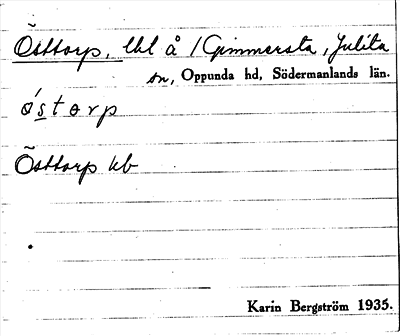 Östtorp, lhl å /Gimmersta, Julita
sn, Oppunda hd, Södermanlands län.
ǿstorp
Östtorp kb
Karin Bergström 1935.